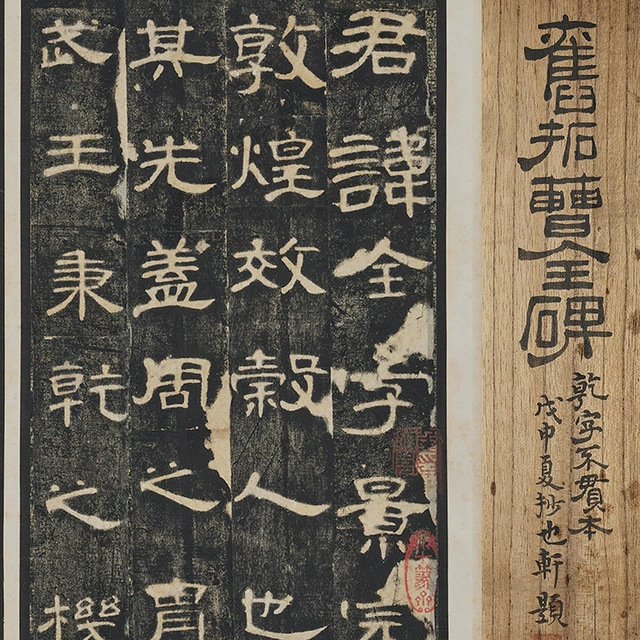 舊拓曹全碑
乾字不貫本
戊申夏抄也軒題
君諱全字景完
敦煌效穀人也
其先蓋周之胄
武王秉乾之機